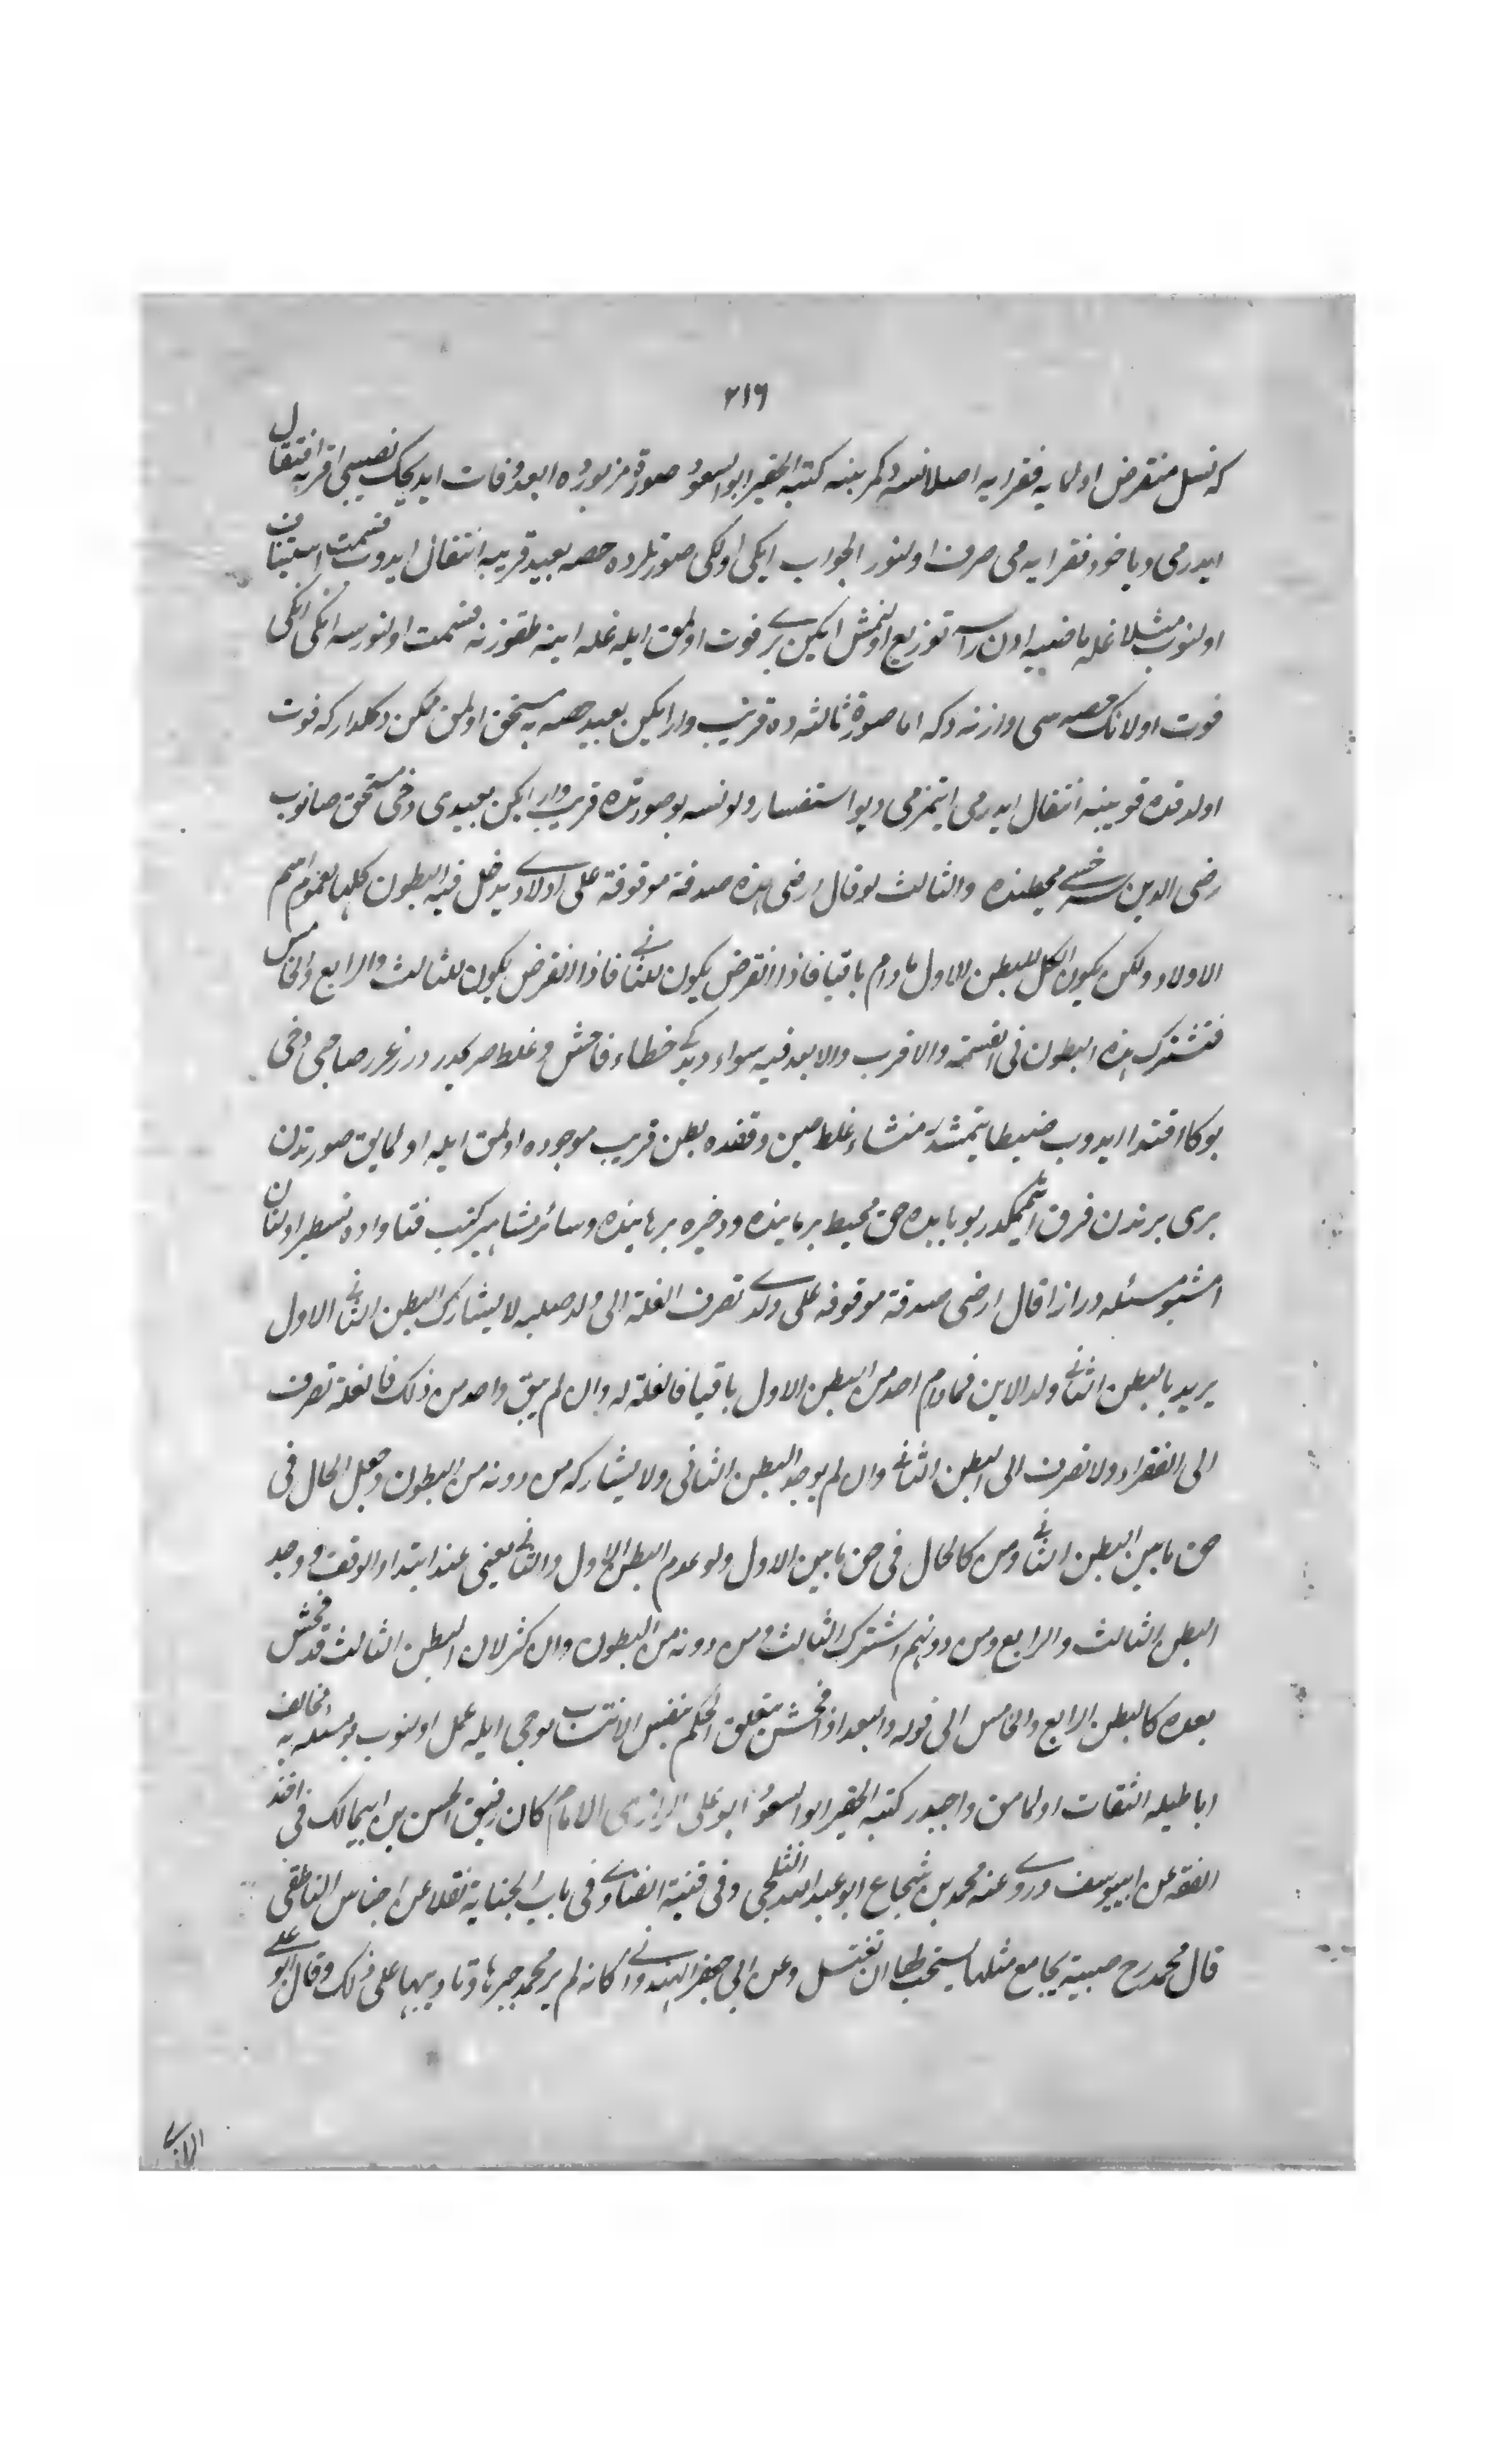 ٢١٦
كه نسل منقرض اولمايه فقرايه اصلا نسنه دكمز بينه كتبه الحقير ابو السعود صورة مزبوره ده ابعد وفات ايديجك نصيبى اقربه انتقال
ايدر مى ويا خود فقرايه مى صرف اولنور الجواب ايكى اولكى صورتلرده حصه بعيد قريبه انتقال ايدوب قسمت استيناف
اولنوب مثلا غله ماضيه اون رأسه توزيع اولنمش ايكين برى فوت اولمق ايله غله اتيه طقوزنه قسمت اولنورسه ايكى ايكى
فوت اولانك حصه سى وارثنه دكه اما صورة ثالثه ده قريب وار ايكين بعيد حصه يه مستحق اولمق ممكن دكلدر كه فوت
اولدقده قريبنه انتقال ايدر مى ايتمز مى ديو استفسار اولنسه بو صورتده قريب وار ايكين بعيدى دخى مستحق صانوب
رضى الدين سرخسى محيطنده والثالث لو قال ارضى هذه صدقة موقوفة على اولادى يدخل فيه البطون كلها لعموم اسم
الاولاد ولكن يكون الكل للبطن الاول ما دام باقيا فاذا انقرض يكون للثانى فاذا انقرض يكون للثالث والرابع والخامس
فتشترك هذه البطون فى القسمة والاقرب والابعد فيه سواء ديدكى خطاء فاحش وغلط صريحدر درر غرر صاحبى دخى
بوكا اقتدا ايدوب ضبط ايتمشدر منشاء غلط حين وقفده بطن قريب موجود اولمق ايله اولمايق صورتدن
برى برندن فرق ايتمكدر بو بابده حق محيط برهانيده وذخيره برهانيده وسائر مشاهير كتب فتاواده تسطير اولنان
اشبو مسئله در اذا قال ارضى صدقة موقوفه على ولدى تصرف الغلة الى ولد صلبه لا يشارك البطن الثانى الاول
يريد بالبطن الثانى ولد الابن فمادام احد من البطن الاول باقيا فالغلة له وان لم يبق واحد من ذلك فالغلة تصرف
الى الفقراء ولا تصرف الى البطن الثانى وان لم يوجد البطن الثانى ولا يشاركه من دونه من البطون وجعل الحال فى
حق ما بين البطن الثانى ومن كالحال فى حق ما بين الاول ولو عدم البطن الاول والثانى يعنى عند ابتداء الوقف ووجد
البطن الثالث والرابع ومن دونهم اشترك الثالث ومن دونه من البطون وان كثر لان البطن الثالث قد فحش
بعده كالبطن الرابع والخامس الى قوله والبعد اذا فحش يتعلق الحكم بنفس الانتساب موجبى ايله عمل اولنوب بو مسئله يه مخالف
اباطيله التفات اولنمامق واجبدر كتبه الحقير ابو السعود ابو على الرازى الامام كان رفيق الحسن بن ابى مالك فى اخذ
الفقه عن ابى يوسف وروى عنه محمد بن شجاع ابو عبد الله الثلجى وفى قنية الفتاوى فى باب الجنابة نقلا عن اجناس الناطفى
قال محمد رح صبية يجامع مثلها يستحب لها ان تغتسل وعن ابى جعفر الهندوانى كانه لم ير محمد جبرها وتاديبها على ذلك وقال ابو على
الرازى